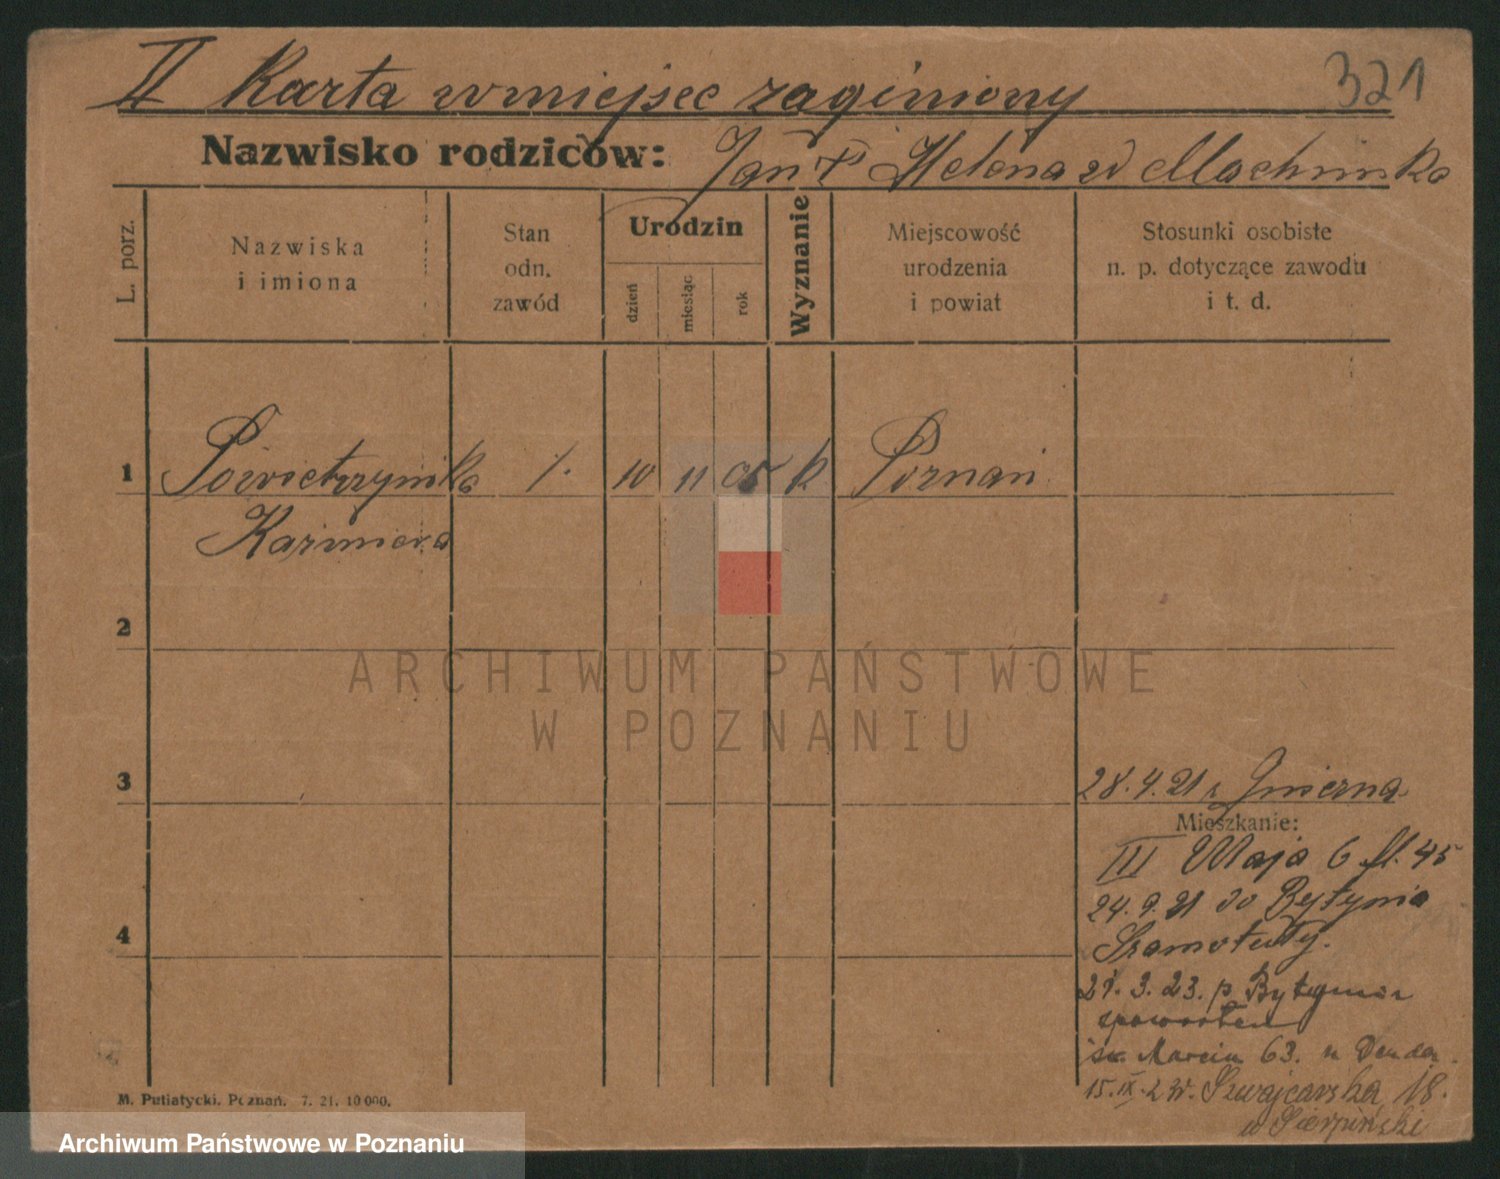 II Karta w miejsce zaginiony
321
Nazwisko rodziców: Jan i Helena zd Machninka
L. porz.
Nazwiska
i imiona
Stan
odn.
zawód
Urodzin
dzień
miesiąc
rok
Wyznanie
Miejscowość
urodzenia
i powiat
Stosunki osobiste
n. p. dotyczące zawodu
i t. d.
1 Powietrzynska /. 10 11 05 k Poznań
Kazimiera
2
ARCHIWUM PAŃSTWOWE
W POZNANIU
3
28.4.21 z Gniezna
Mieszkanie:
III Maja 6 45
4
24.9.21 do Bytynia
Szamotuły.
3. 23. Bytynia
spowrotem
św. Marcin 63. u
15.IX. Szwajcarska 18.
u Sierpiński
M. Putiatycki. Poznań. 7. 21. 10 000.
Archiwum Państwowe w Poznaniu